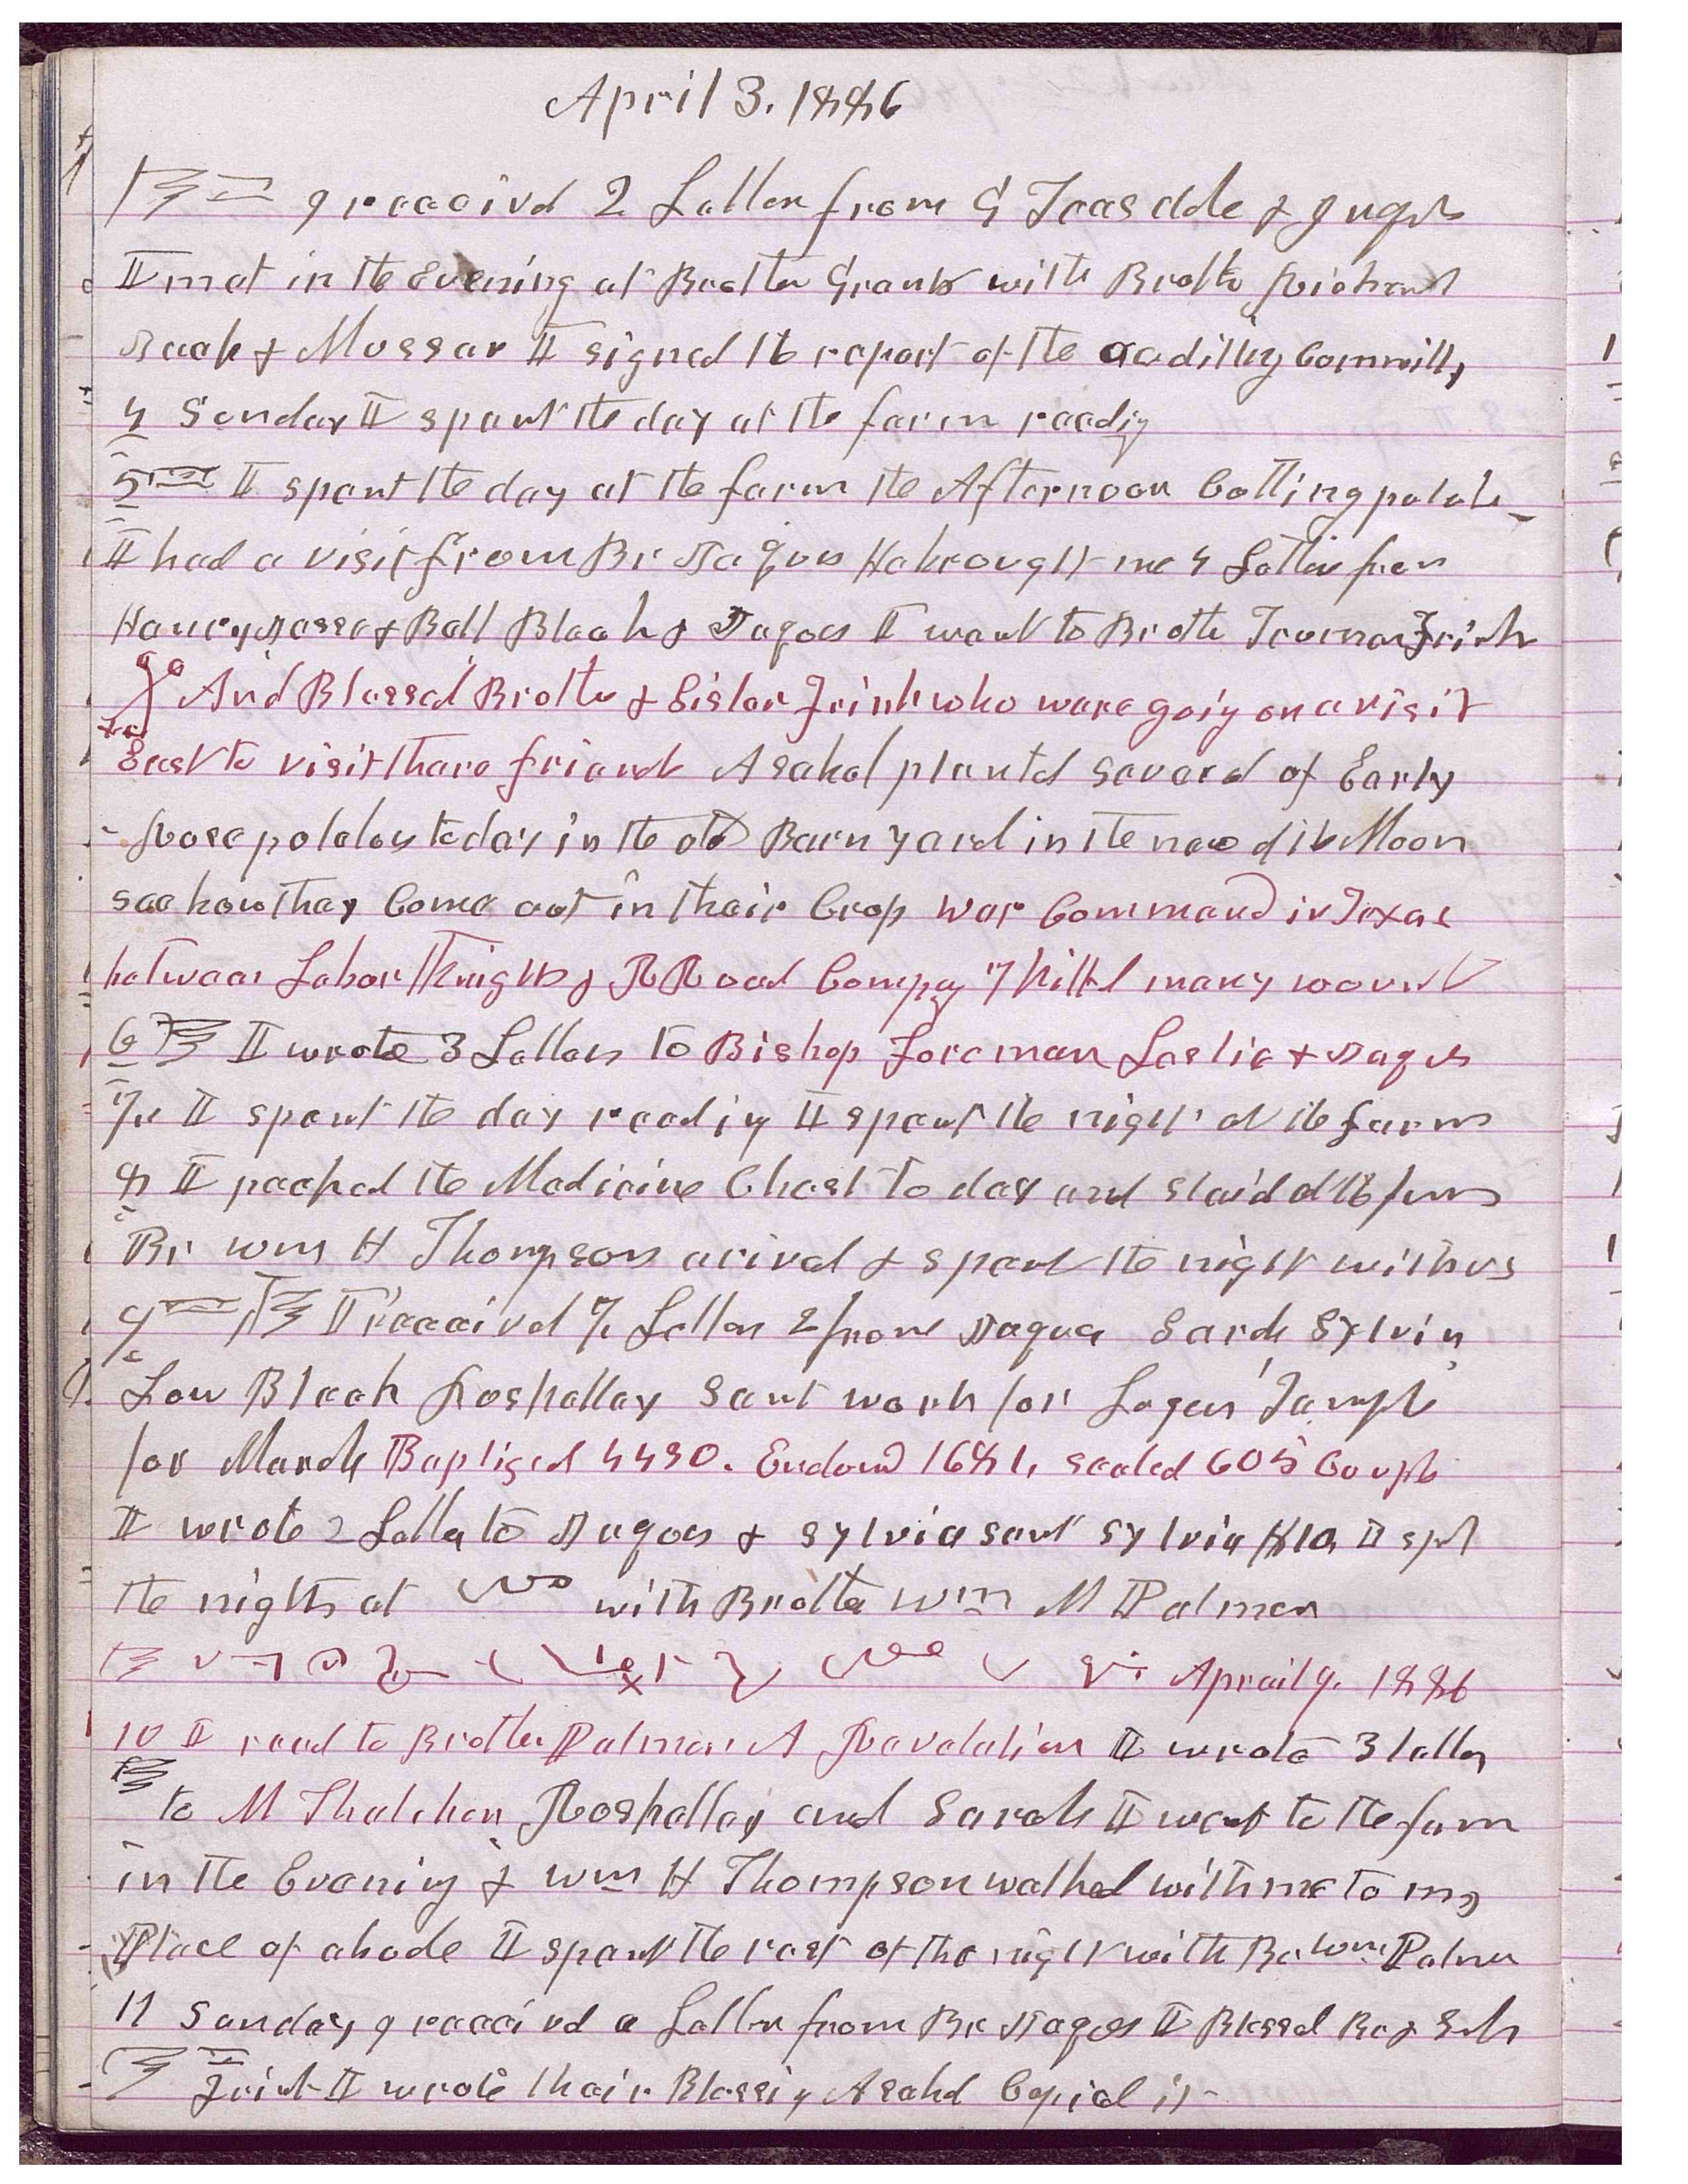 April 3. 1886
I receivd 2 Letters from G Teasdale & Jaques
I met in the Evening at Brother Grants with Brother Richards
Jack & Musser I signed the report of the auditing Committ,
4 Sunday I spent the day at the farm readig
5 I spent the day at the farm the Afternoon Cutting potato
I had a visit from Br Jaques He brought me 4 Letters from
Bell Bleak & Jaques I went to Brothe Freeman Frink
And Blessed Brother & Sister Frink who ware goig on a visit
East to visit thare friends Asahel plantd several of Early
Rose potatoes to day in the old Barn yard in the new of the Moon
see how they Come out in their Crop War Commencd in Texas
between Labor Knights & RRoad Compay 7 killd many wound
6 I wrote 3 Letters to Bishop Foreman Leslie & Jaques
7 I spent the day readig I spent the night at the farm
8 I packed the Medicine Chest to day and staid at the farm
Br Wm H Thompson arived & spent the night with us
9 I receeivd 7 Letters 2 from Jaques Sarah Sylvia
Low Bleak Roskelley Sent work for Logan Temple
for March Baptised 4490. Endowd 1681, sealed 605 Coupls
I wrote 2 Letters to Jaques & Sylvia sent Sylvia $10, I spt
the nights at with Brother Wm M Palmer
Aprail 9. 1886
10 I read to Brother Palmer A Revelation I wrote 3 letters
to M Thatcher Roskelley and Sarah I went to the farm
in the Evenig & Wm H Thompson walked with me to my
Place of abode I spent the rest of the night with Br Wm Palmer
11 Sunday I receeivd a Letter from Br Jaques I Blessed Br & Sister
Frink I wrote their Blessig Asahel Copied it